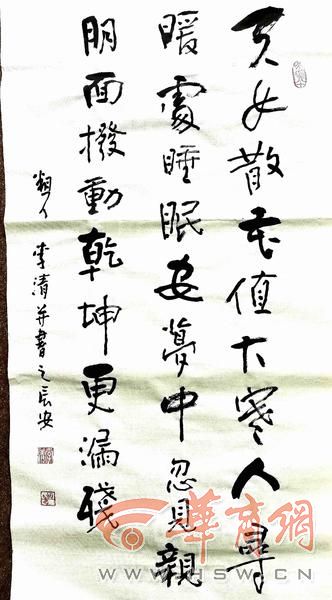 天女散花值大寒人尋
暖處睡眠安夢中忽見親
朋面撥動乾坤更漏殘
人 李清并書之長安
華商網
WWW.HSW.CN